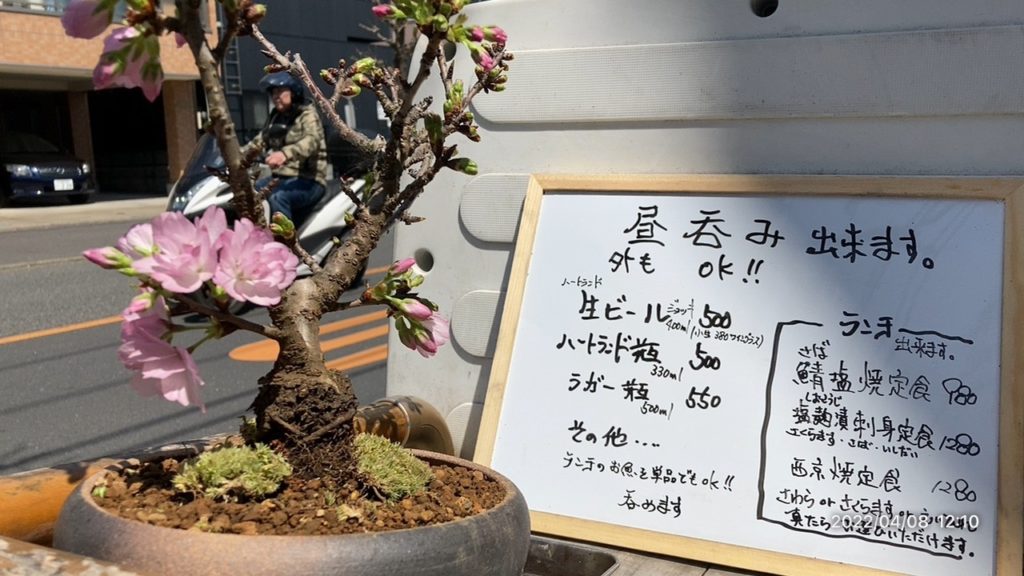 昼呑み出来ます。
外も OK!!
ハートランド
生ビール ジョッキ 400ml 500
ハートランド瓶 500
330ml
ラガー瓶 550
500ml
その他‥‥
ランチのお魚を単品でもOK!!
呑めます
ランチ
出来ます。
さば
鯖塩焼定食 980
しおこうじ
塩麹漬刺身定食 1280
さくらます・さば・いしだい
西京焼定食 1280
さわら or さくらます
真たら
お選びいただけます。
2022/04/08 12:10